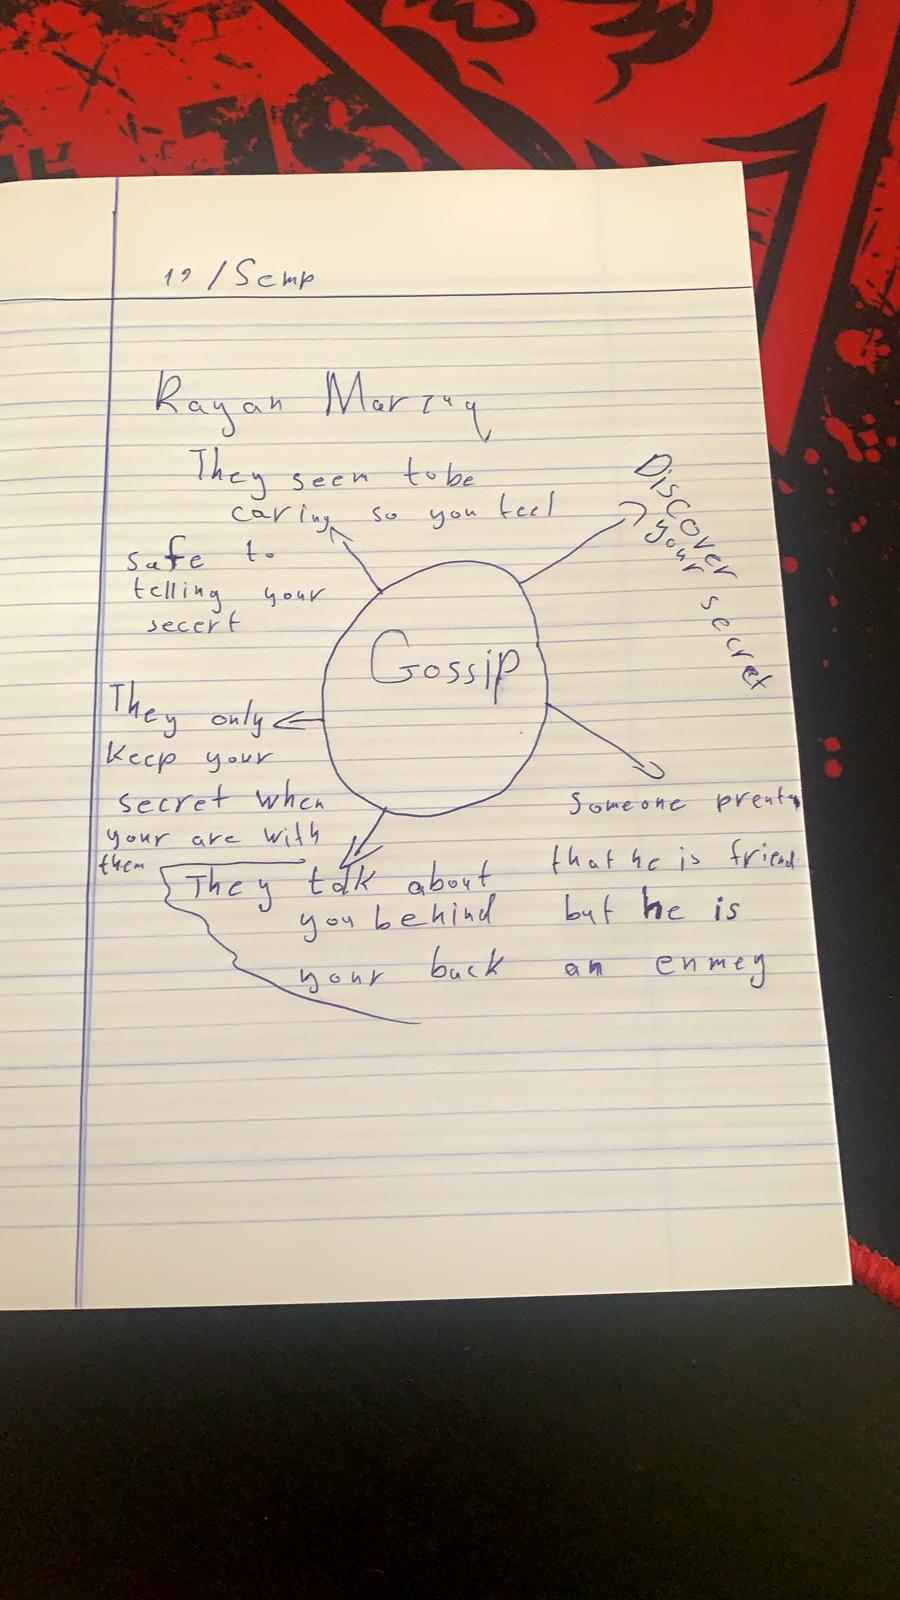 19 /Semp
Rayan Marzuq
They seen to be
caring so you feel
safe to
telling your
secert
Discover
your secret
Gossip
They only
keep your
secret when
your are with
them
They talk about
you behind
your back
Someone prent
that he is friend
but he is
an enmey